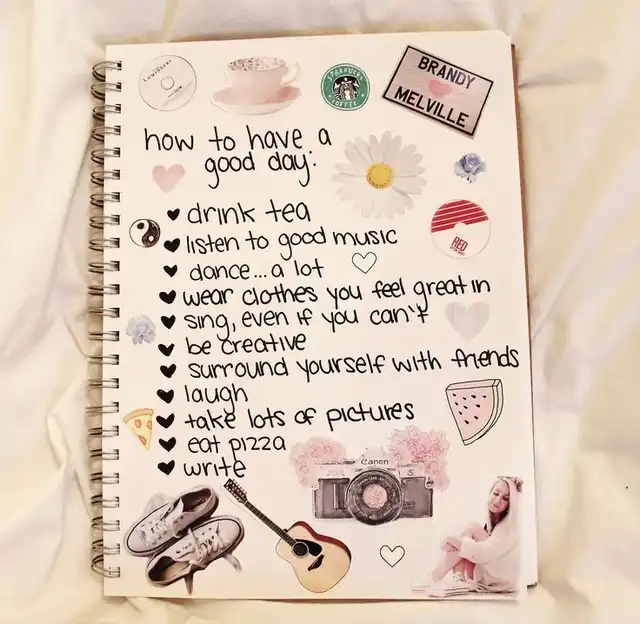 THE LUMINEERS
STARBUCKS
COFFEE
BRANDY
MELVILLE
how to have a
good day:
drink tea
listen to good music
RED
dance... a lot
wear clothes you feel great in
sing, even if you can't
be creative
surround yourself with friends
laugh
take lots of pictures
eat pizza
write
Canon